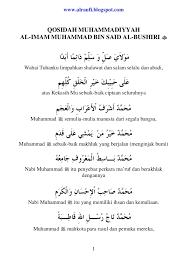 www.alraufi.blogspot.com
QOSIDAH MUHAMMADIYYAH
AL-IMAM MUHAMMAD BIN SAID AL-BUSHIRI
مَوْلَايَ صَلِّ وَ سَلِّمْ دَائِمًا أَبَدًا
Wahai Tuhanku limpahkan shalawat dan salam selalu dan abadi,
عَلَى حَبِيْبِكَ خَيْرِ الْخَلْقِ كُلِّهِمِ
atas Kekasih Mu sebaik-baik ciptaan seluruhnya
مُحَمَّدٌ أَشْرَفُ الْأَعْرَابِ وَالْعَجَمِ
Nabi Muhammad ﷺ semulia-mulia manusia dari segala bangsa,
مُحَمَّدٌ خَيْرُ مَنْ يَمْشِي عَلَى قَدَمِ
Nabi Muhammad ﷺ sebaik-baik makhluk yang berjalan (menginjak bumi)
مُحَمَّدٌ بَاسِطُ الْمَعْرُوْفِ جَامِعُهُ
Nabi Muhammad ﷺ itu penyebar perkara ma'ruf dan berakhlak
dengannya
مُحَمَّدٌ صَاحِبُ الْإِحْسَانِ وَالْكَرَمِ
Nabi Muhammad ﷺ itu yang memiliki ihsan dan kemuliaan,
مُحَمَّدٌ تَاجُ رُسْلِ اللهِ قَاطِبَةً
Nabi Muhammad ﷺ mahkota para rasul dan pemuka mereka,
1